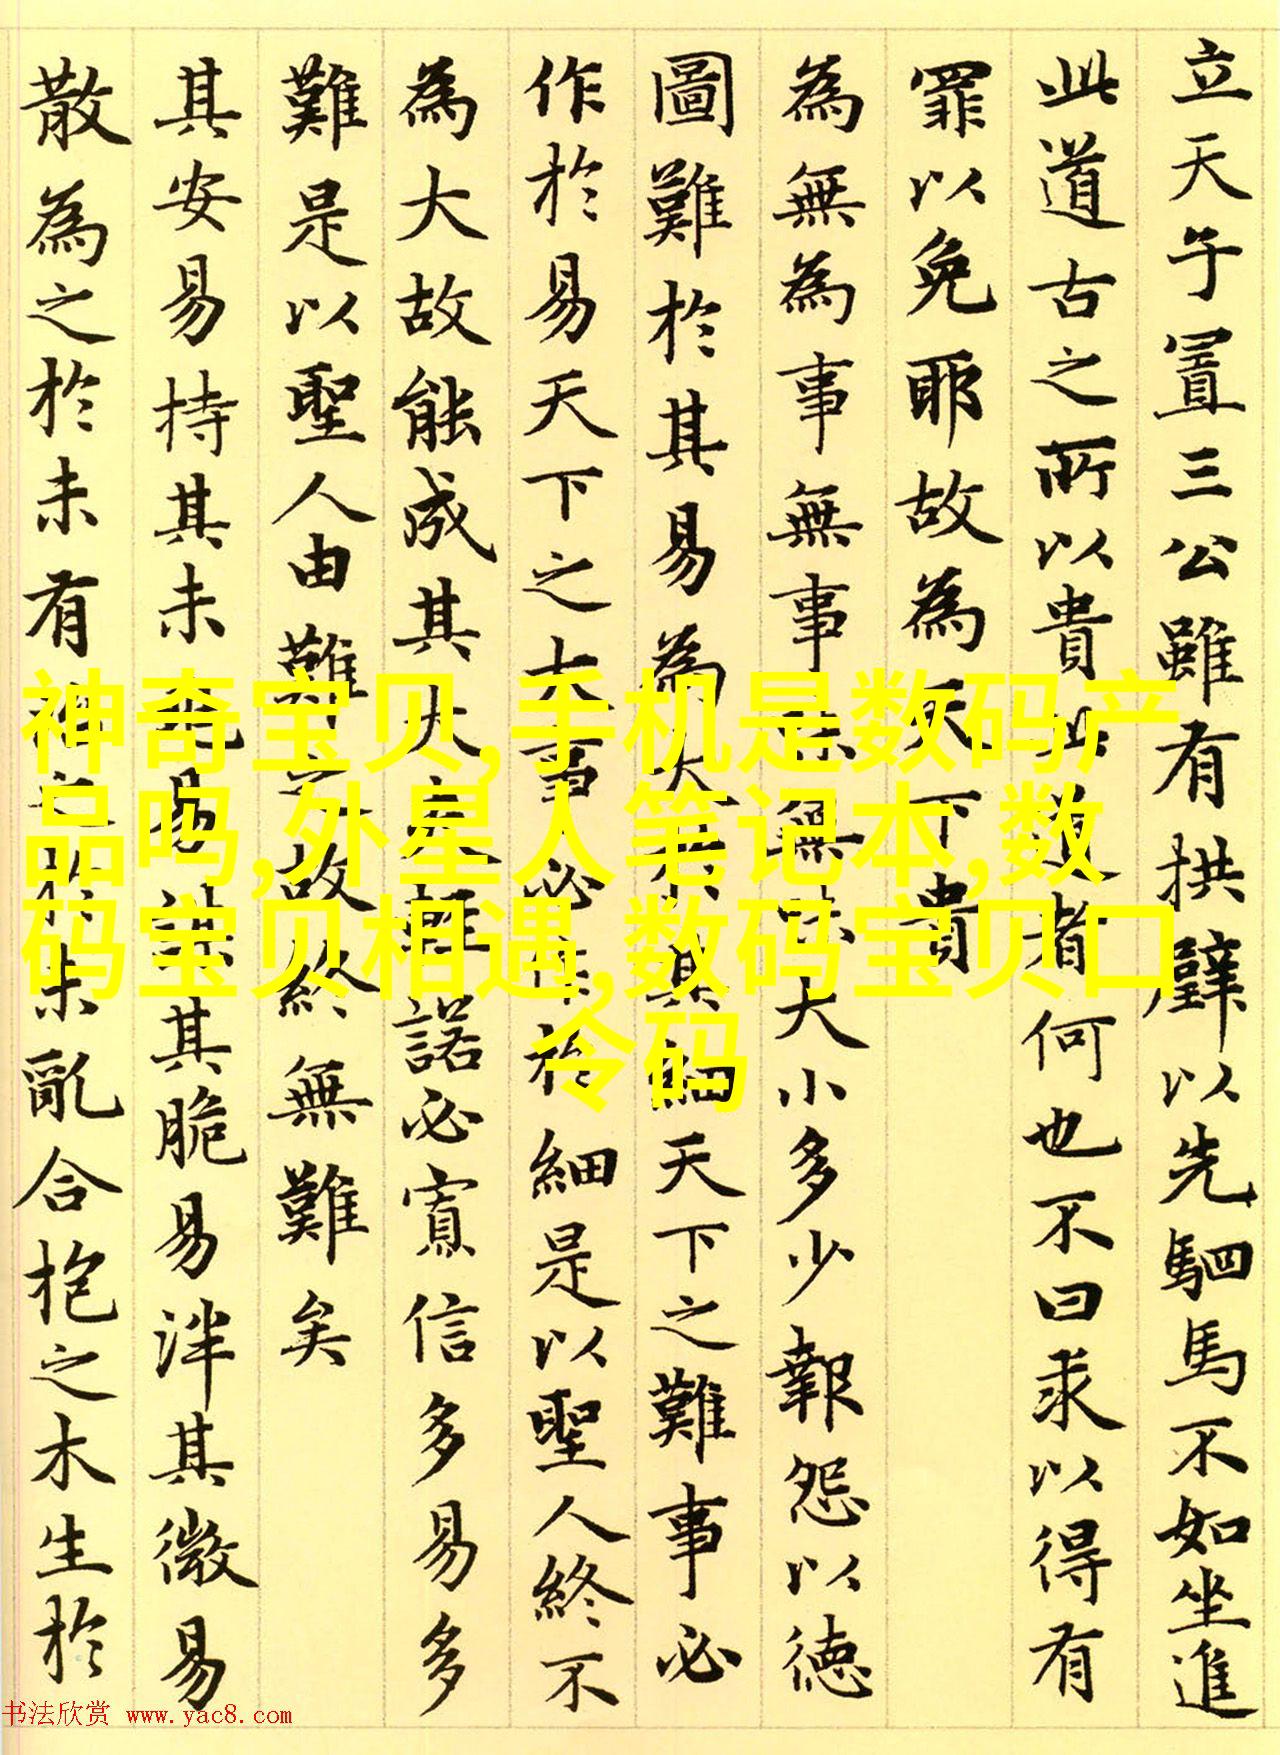 立天子置三公雖有拱璧以先駟馬不如坐進
此道古之所以貴此道者何也不曰求以得有
罪以免耶故為天下貴
為無為事無事味無味大小多少報怨以德
圖難於其易為大於其細天下之難事必
作於易天下之大事必作於細是以聖人終不
為大故能成其大夫輕諾必寡信多易多
難是以聖人由難之故終無難矣
其安易持其未兆易謀其脆易泮其微易
散為之於未有治之於未亂合抱之木生於
神奇宝贝,手机是数码产
品吗,外星人笔记本,数
码宝贝相遇,数码宝贝口
令码
书法欣赏 www.yac8.com